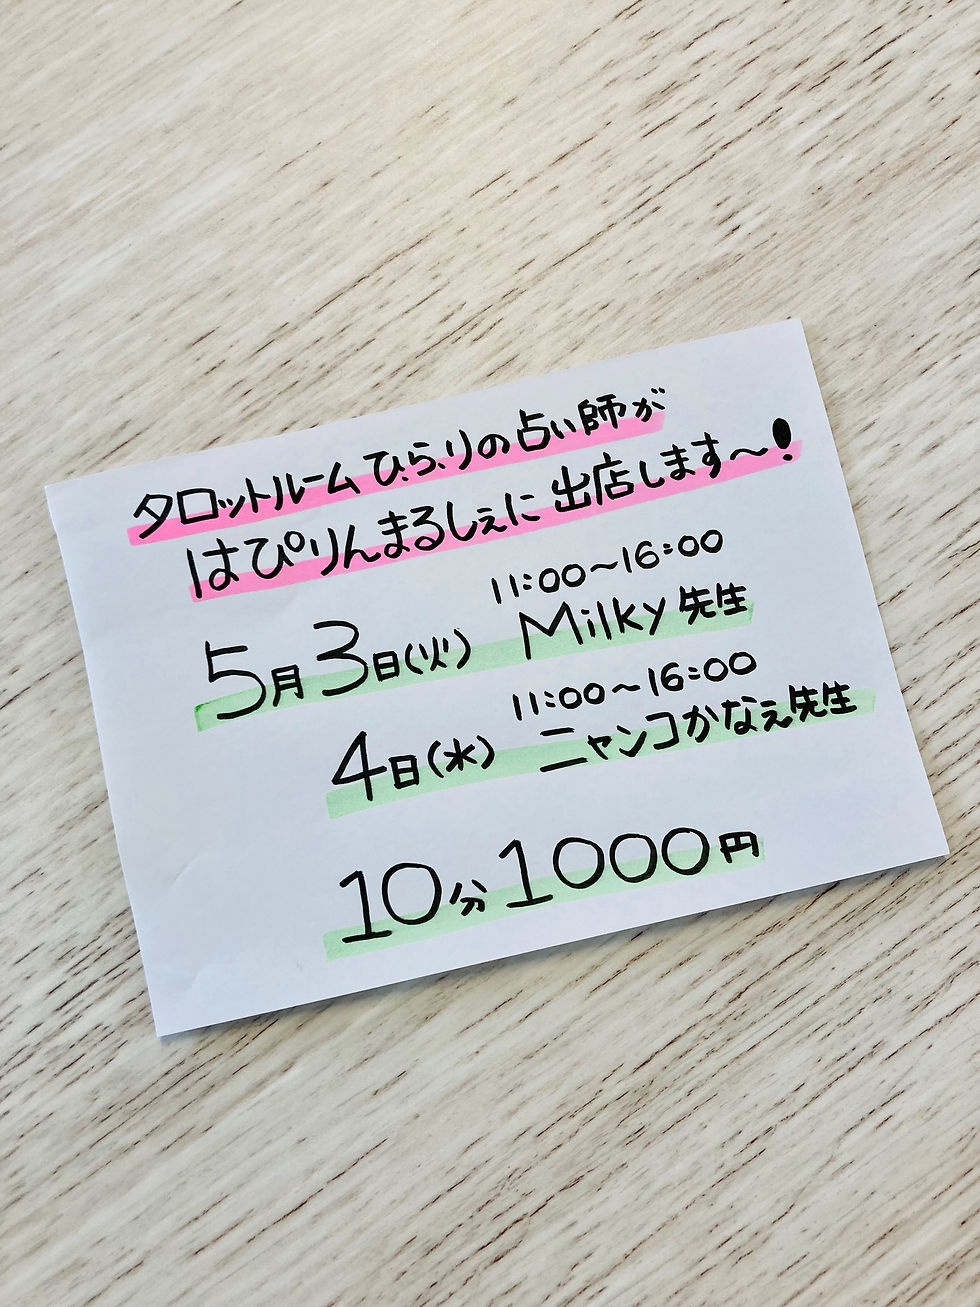 タロットルームひらりの占い師が
はぴりんまるしぇに出店します〜!
11:00〜16:00
5月3日(火) Milky先生
11:00〜16:00
4日(水) ニャンコかなえ先生
10分1000円